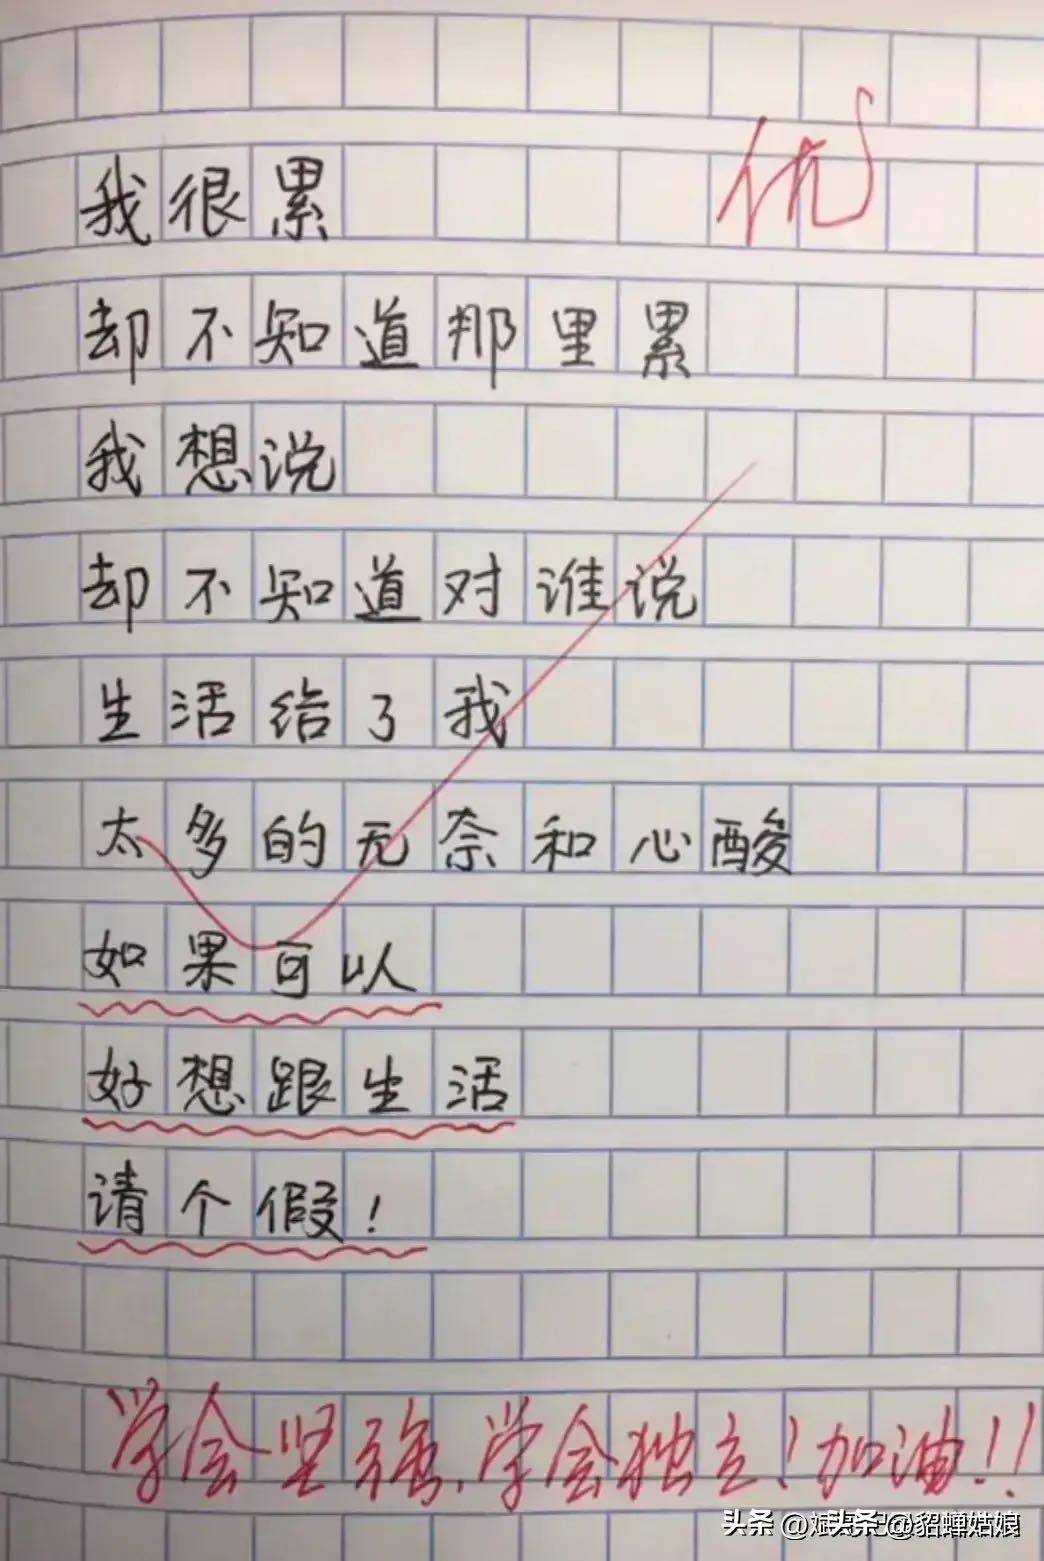 优
我很累
却不知道那里累
我想说
却不知道对谁说
生活给了我
太多的无奈和心酸
如果可以
好想跟生活
请个假！
学会坚强，学会独立！加油！！
头条 @貂蝉姑娘